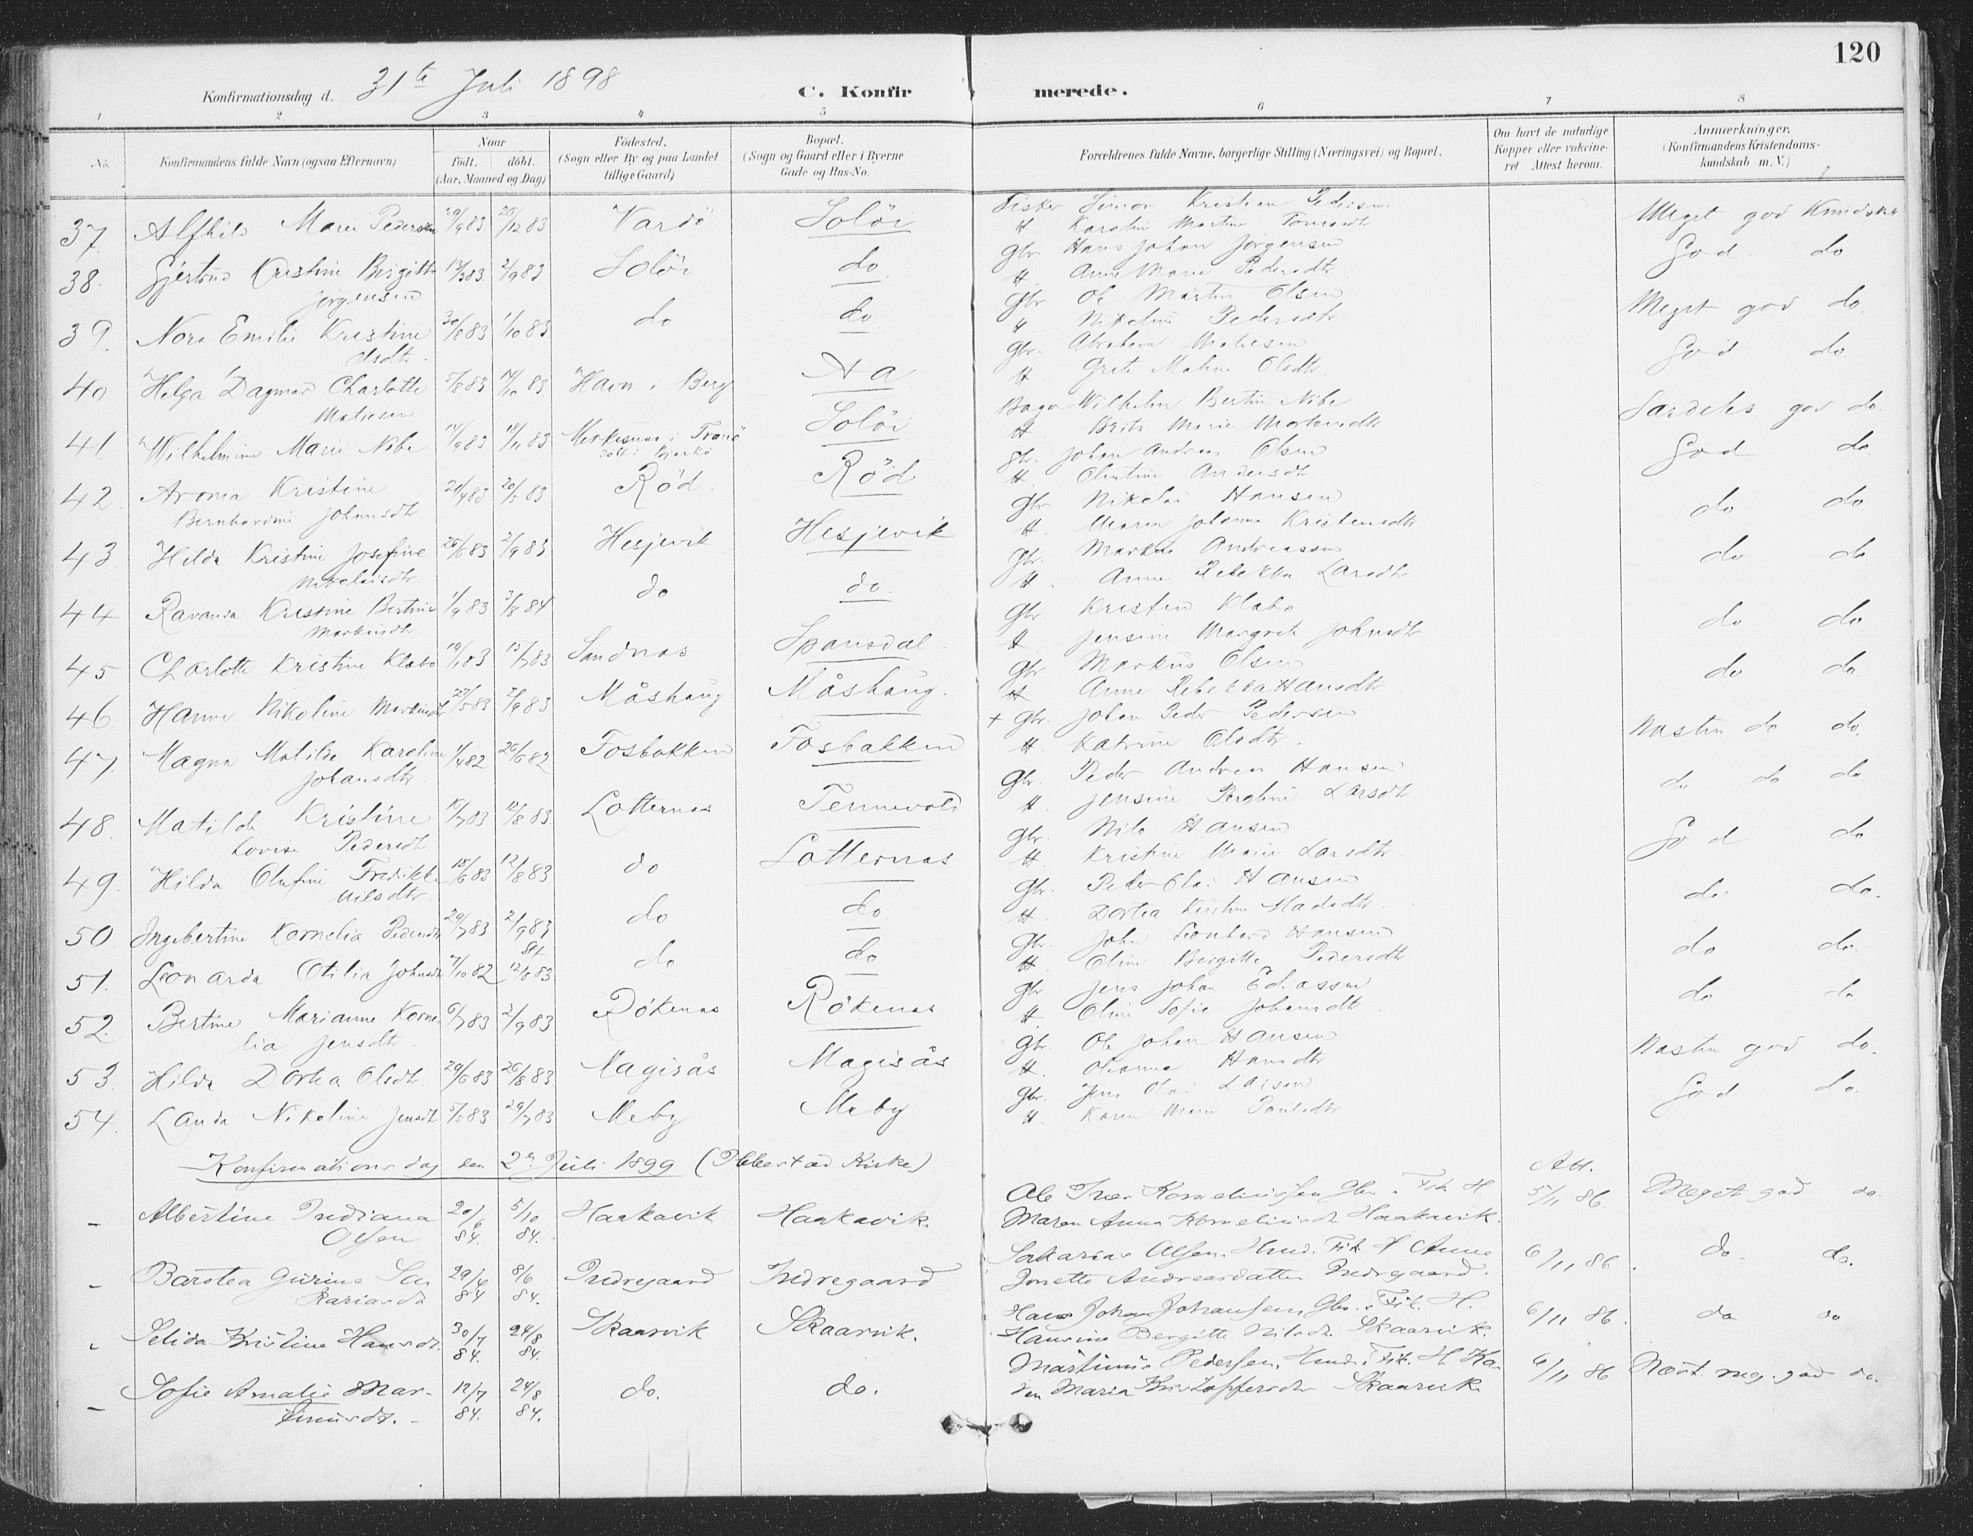 120
Konfirmationsdag d. 31te Juli 1898
C. Konfirmerede.
1 2 3 4 5 6 7 8
No.
Konfirmandens fulde Navn (ogsaa Efternavn)
Naar
födt. döbt.
(Aar, Maaned og Dag)
Födested.
(Sogn eller By og paa Landet
tillige Gaard)
Bopæl.
(Sogn og Gaard eller i Byerne
Gade og Hus-No.
Forældrenes fulde Navne, borgerlige Stilling (Næringsvei) og Bopæl.
Om havt de naturlige
Kopper eller vaccine-
ret Attest herom.
Anmærkninger.
(Konfirmandens Kristendoms-
kundskab m. V.)
37. Alfhild Marie Pedersen 29/9 83 26/12 83 Vardö Solöi Fisker Simon Kristian Pedersen Meget god Kundskab
H Karoline Martine Tomasdtr
38. Gjertrud Kristine Birgitte 13/3 83 2/9 83 Solöi do Gbr Hans Johan Jørgensen God do
Jørgensen H Anne Marie Pedersdtr
39. Nora Emilie Kristine 30/8 83 1/10 83 do do Gbr Ole Martin Olsen Meget god do.
Olsdtr. H Nikoline Pedersdtr.
40 Helga Dagmar Charlotte 5/8 83 14/10 83 Havn i Berg Aa Gbr. Abraham God do
H Grete Malene Olsdtr.
41. Wilhelmine Marie Nibe 14/9 83 18/11 83 i Tranö Solöi Bager Wilhelm Bertin Nibe Særdeles god do.
H Berit Marie
42. Arona Kristine 24/4 83 20/5 83 Röd. Röd Gbr. Johan Andreas Olsen God do.
Bernhardine Johansdtr. H Olentine Andersdtr
43. Hilda Kristine Josefine 26/6 83 2/9 83 Hesjevik Hesjevik Gbr Nikolai Hansen do do
Nikolaisdtr H. Maren Johanna Kristensdtr
44 Ravanda Kristine Bertine 1/9 83 3/8 84 do do. Gbr Markus Andreassen do do
Markusdtr H. Anne Rebekka Larsdtr
45 Charlotte Kristine Klabo 19/1 83 15/7 83 Sandnæs Spansdal. Gbr Kristen Klabo do do
H. Jensine Margrete Johnsdtr
46. Hanna Nikoline Markusdtr 27/5 83 2/9 83 Måshaug Måshaug. Gbr Markus Olsen do do.
H Anne Rebekka Hansdtr
47. Magna Matilde Karoline 4/4 82 26/6 82 Fosbakken Fosbakken + Gbr Johan Peder Pedersen Næsten do do.
Johansdtr. H Katrine Olsdtr.
48. Matilde Kristine 10/7 83 12/8 83 Lotternæs Tennevold Gbr Peder Andreas Hansen do do do
Lovise Pedersdtr H. Jensine Larsdtr
49. Hilda Olufine Fredikke 18/6 83 12/8 83 do Lotternæs Gbr Nils Hansen God do
Nilsdtr H Kristine Marie Larsdtr.
50. Ingebertine Kornelia Pedersdtr 29/7 83 2/9 83 do do Gbr. Peder Olai Hansen do. do.
H. Dortea Kirstine Madsdtr.
51. Leonarda Otilia Johnsdtr 7/10 82 12/8 83 do do Gbr. John Leonhard Hansen do do.
H. Oline Birgitte Pedersdtr
52. Bertine Marianne Korne- 6/7 83 2/9 83 Rökenæs Rökenæs Gbr Jens Johan Eliassen do do
lia Jensdtr. H. Oline Sofie Johansdtr.
53. Hilda Dortea Olsdtr. 29/6 83 26/8 83 Magisås Magisås Gbr. Ole Johan Hansen Næsten god do.
H. Hansdtr
54. Landa Nikoline Jensdtr 5/5 83 29/7 83 Meby Meby Gbr. Jens Olai Larsen God do.
H Karen Marie
Konfirmationsdag den 2den Juli 1899 (Ibbestad Kirke)
Att.
- Albertine Indiana 20/6 84. 5/10 84. Haakavik Haakavik. Ole Iver Korneliussen Gbr. Fisk. H. 5/11 86 Meget god do.
Olsen Maren Anna Korneliusdtr. Haakavik.
- Barstea Gurine Sa- 29/4 84 8/6 84. Indregaard Indregaard Sakarias Olsen, Hmd. Fisk H Anne 6/11 86. do. do.
kariasdtr Jonette Andreasdatter Indregaard.
- Selida Kristine Hansdtr. 30/7 84. 24/8 84. Skaarvik Skaarvik. Hans Johan Johansen, Gbr. Fisk. H. 6/11 86. do do
Hansine Bergitte Nilsdtr. Skaarvik.
- Sofie Amalie Mar- 12/7 84. 24/8 84. do. do. Martinus Pedersen, Hmd. Fisk. H. Ka- 6/11 86 Næst. meg. god do.
tinusdtr. - ren Maria Kristoffersdtr Skaarvik.